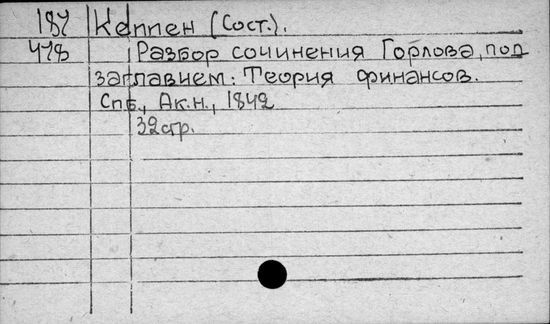 187 Кеппен (Сост.).
478 Разбор сочинения Горлова, под
заглавием: Теория финансов.
Спб., Ак.н., 1842
32стр.